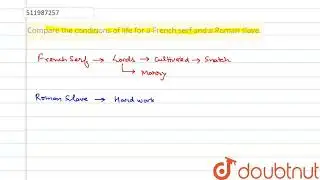 511987257
Compare the conditions of life for a French serf and a Roman slave.
French Serf → Lords → Cultivated → Snatch
↳ Money
Roman Slave → Hard work
doubtnut